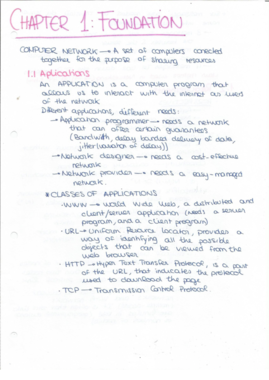 CHAPTER 1: FOUNDATION
COMPUTER NETWORK → A set of computers conected
together for the purpose of sharing resources
1.1 Aplications
An APPLICATION is a computer program that
allows us to interact with the internet as users
of the network
Diferent applications, different needs:
→ Application programmer → needs a network
that can offer certain guarantees
(Bandwidth, delay bonded delivery of data,
jitter (variation of delay))
→ Network designer → needs a cost-effective
network
→ Network provider → needs a easy-managed
network.
* CLASSES OF APPLICATIONS
· WWW → World Wide Web, a distributed and
client/server application (needs a server
program, and a client program)
· URL → Uniform Resource Locator, provides a
way of identifying all the possible
objects that can be viewed from the
web browser
· HTTP → Hyper Text Transfer Protocol, is a part
of the URL, that indicates the protocol
used to download the page
· TCP → Transmission Control Protocol.